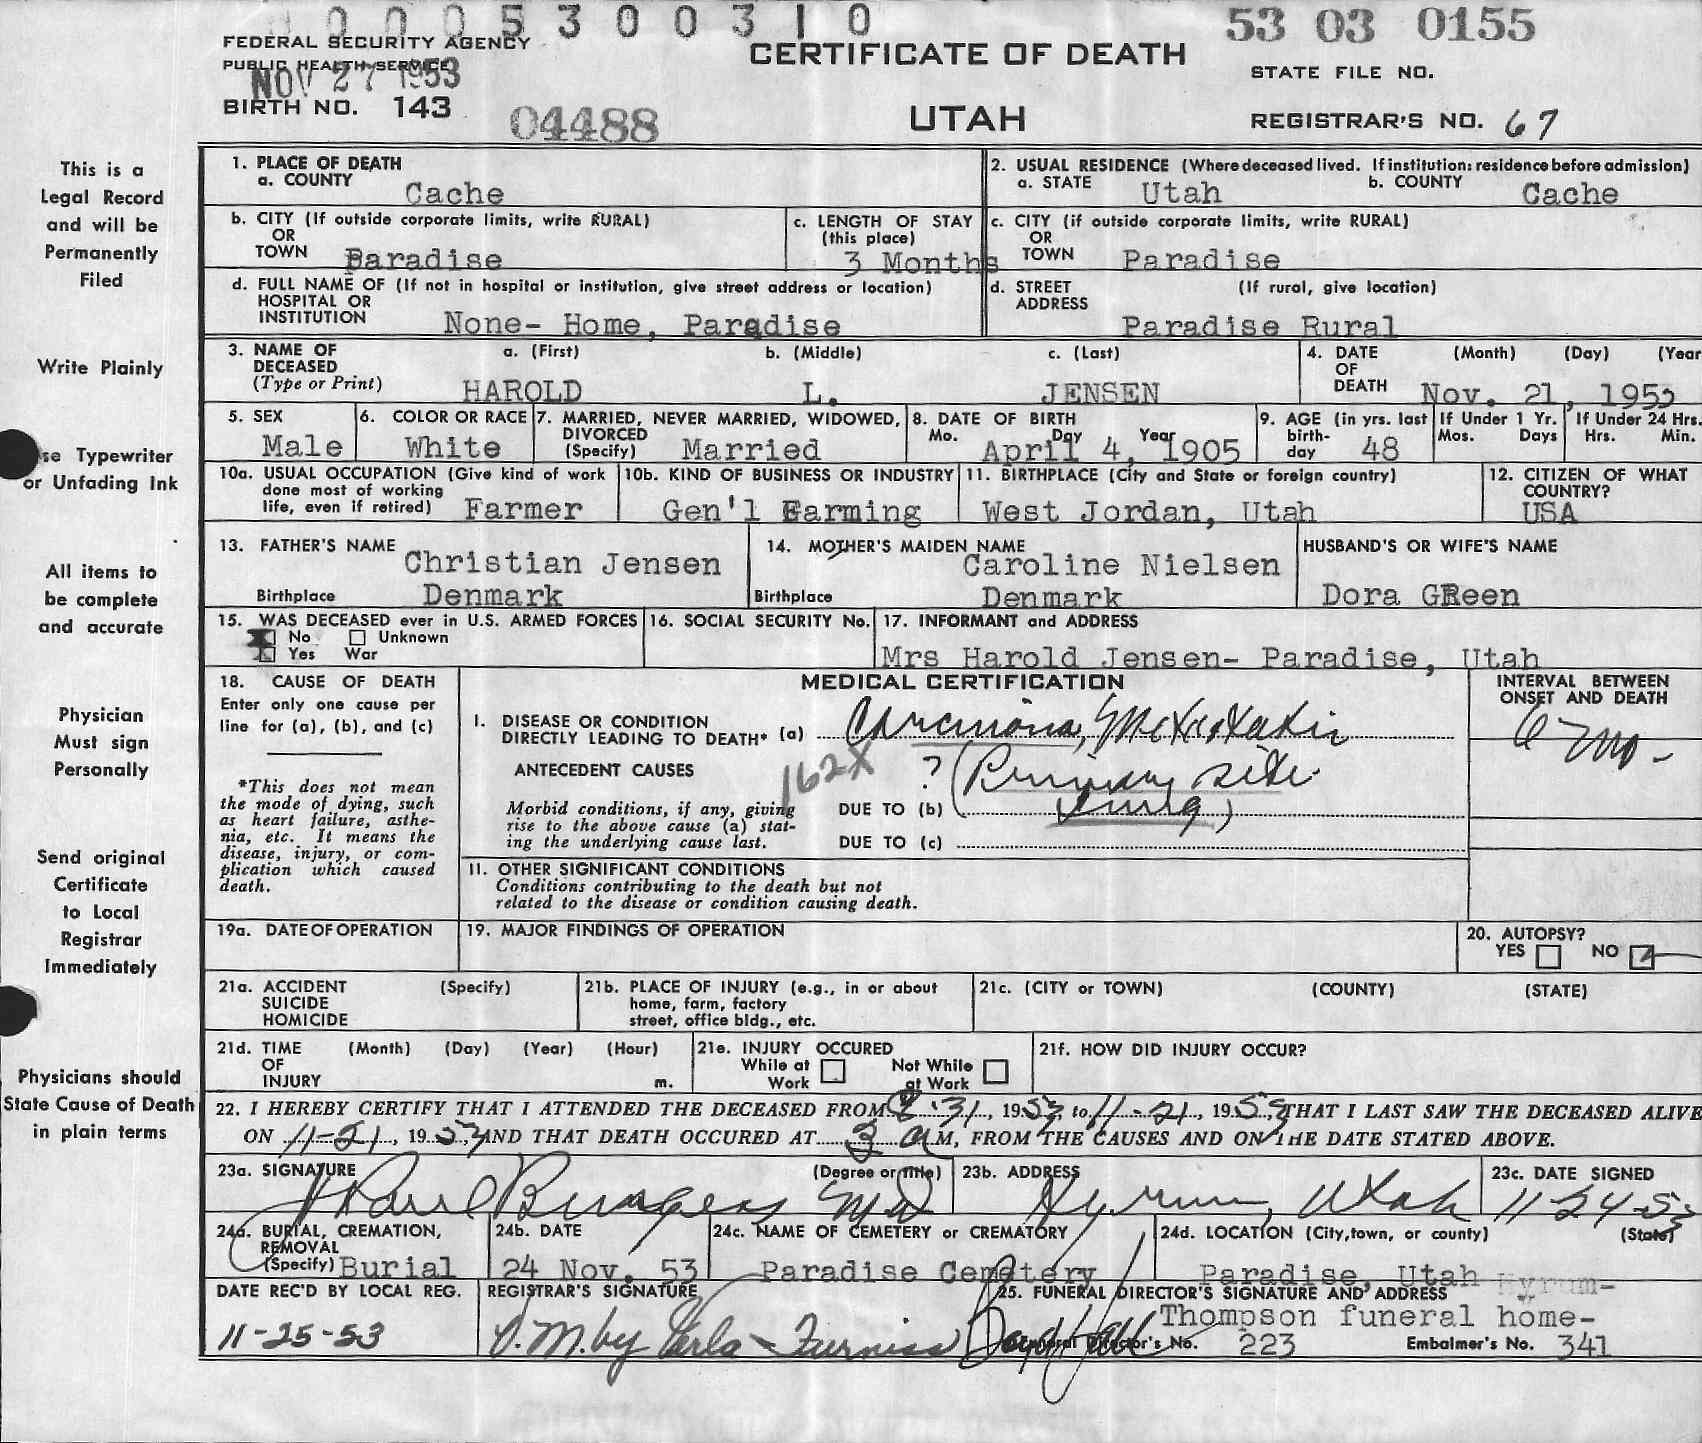 0 0 0 5 3 0 0 3 1 0
53 03 0155
FEDERAL SECURITY AGENCY
PUBLIC HEALTH SERVICE
NOV 27 1953
CERTIFICATE OF DEATH
STATE FILE NO.
BIRTH NO. 143
04488
UTAH
REGISTRAR'S NO. 67
This is a
Legal Record
and will be
Permanently
Filed
Write Plainly
se Typewriter
or Unfading Ink
All items to
be complete
and accurate
Physician
Must sign
Personally
Send original
Certificate
to Local
Registrar
Immediately
Physicians should
State Cause of Death
in plain terms
1. PLACE OF DEATH
a. COUNTY Cache
2. USUAL RESIDENCE (Where deceased lived. If institution: residence before admission)
a. STATE Utah b. COUNTY Cache
b. CITY (If outside corporate limits, write RURAL)
OR
TOWN Paradise
c. LENGTH OF STAY
(this place)
3 Months
c. CITY (if outside corporate limits, write RURAL)
OR
TOWN Paradise
d. FULL NAME OF (If not in hospital or institution, give street address or location)
HOSPITAL OR
INSTITUTION None- Home, Paradise
d. STREET (If rural, give location)
ADDRESS
Paradise Rural
3. NAME OF a. (First) b. (Middle) c. (Last)
DECEASED
(Type or Print) HAROLD L. JENSEN
4. DATE (Month) (Day) (Year
OF
DEATH Nov. 21, 1953
5. SEX
Male
6. COLOR OR RACE
White
7. MARRIED, NEVER MARRIED, WIDOWED,
DIVORCED
(Specify) Married
8. DATE OF BIRTH
Mo. Day Year
April 4, 1905
9. AGE (in yrs. last
birth-
day 48
If Under 1 Yr.
Mos. Days
If Under 24 Hrs.
Hrs. Min.
10a. USUAL OCCUPATION (Give kind of work
done most of working
life, even if retired) Farmer
10b. KIND OF BUSINESS OR INDUSTRY
Gen'l Farming
11. BIRTHPLACE (City and State or foreign country)
West Jordan, Utah
12. CITIZEN OF WHAT
COUNTRY?
USA
13. FATHER'S NAME Christian Jensen
Birthplace Denmark
14. MOTHER'S MAIDEN NAME
Caroline Nielsen
Birthplace Denmark
HUSBAND'S OR WIFE'S NAME
Dora GReen
15. WAS DECEASED ever in U.S. ARMED FORCES
No Unknown
Yes War
16. SOCIAL SECURITY No.
17. INFORMANT and ADDRESS
Mrs Harold Jensen- Paradise, Utah
18. CAUSE OF DEATH
Enter only one cause per
line for (a), (b), and (c)
*This does not mean
the mode of dying, such
as heart failure, asthe-
nia, etc. It means the
disease, injury, or com-
plication which caused
death.
MEDICAL CERTIFICATION
I. DISEASE OR CONDITION
DIRECTLY LEADING TO DEATH* (a) Carcinoma, Metastatic
ANTECEDENT CAUSES 162X ? (Primary site
Morbid conditions, if any, giving
rise to the above cause (a) stat-
ing the underlying cause last.
DUE TO (b) Lung)
DUE TO (c)
11. OTHER SIGNIFICANT CONDITIONS
Conditions contributing to the death but not
related to the disease or condition causing death.
INTERVAL BETWEEN
ONSET AND DEATH
6 mo-
19a. DATE OF OPERATION
19. MAJOR FINDINGS OF OPERATION
20. AUTOPSY?
YES NO
21a. ACCIDENT (Specify)
SUICIDE
HOMICIDE
21b. PLACE OF INJURY (e.g., in or about
home, farm, factory
street, office bldg., etc.
21c. (CITY or TOWN) (COUNTY) (STATE)
21d. TIME (Month) (Day) (Year) (Hour)
OF
INJURY m.
21e. INJURY OCCURED
While at Not While
Work at Work
21f. HOW DID INJURY OCCUR?
22. I HEREBY CERTIFY THAT I ATTENDED THE DECEASED FROM 8-31, 1953, to 11-21, 1953, THAT I LAST SAW THE DECEASED ALIVE
ON 11-21, 1953, AND THAT DEATH OCCURED AT 3 a M, FROM THE CAUSES AND ON THE DATE STATED ABOVE.
23a. SIGNATURE (Degree or title)
Paul Burgess MD
23b. ADDRESS
Hyrum, Utah
23c. DATE SIGNED
11-24-53
24a. BURIAL, CREMATION,
REMOVAL
(Specify) Burial
24b. DATE
24 Nov. 53
24c. NAME OF CEMETERY or CREMATORY
Paradise Cemetery
24d. LOCATION (City, town, or county) (State)
Paradise, Utah Hyrum-
DATE REC'D BY LOCAL REG.
11-25-53
REGISTRAR'S SIGNATURE
by Furniss
25. FUNERAL DIRECTOR'S SIGNATURE AND ADDRESS
Thompson funeral home-
Funeral Director's No. 223 Embalmer's No. 341